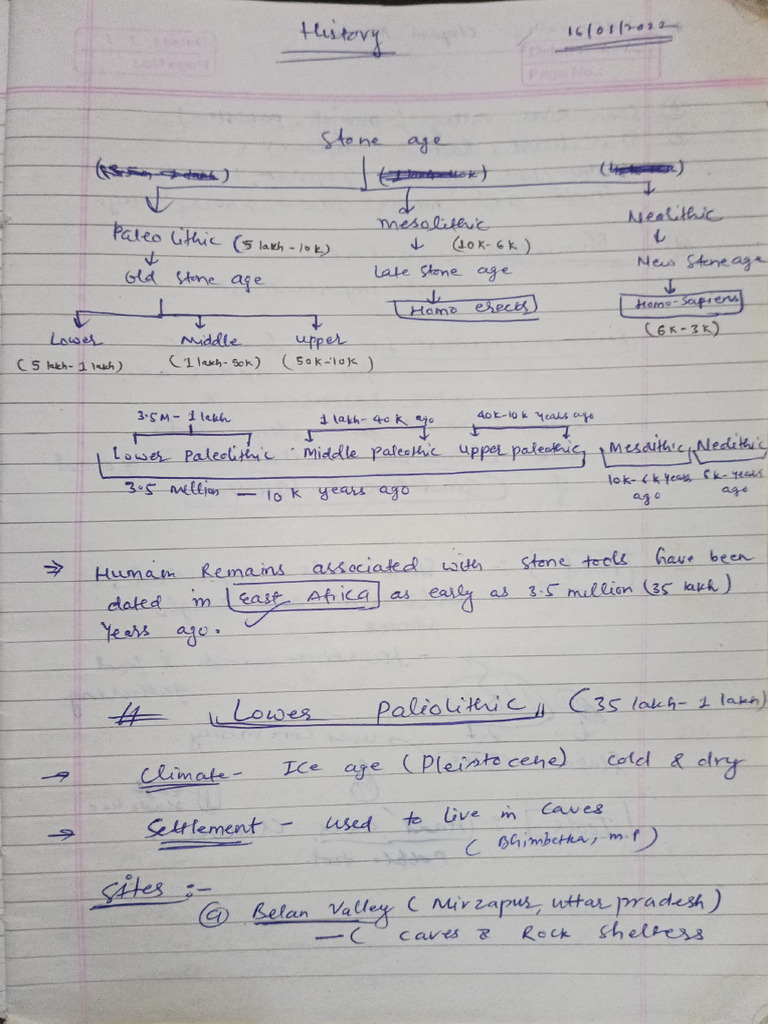 History
16/01/2022
Stone age
Paleolithic (5 lakh-10K)
Mesolithic
(10K-6K)
Neolithic
Old Stone age
Late Stone age
New Stone age
Homo erects
Homo-sapiens
(6K-3K)
Lower
Middle
upper
(5 lakh-1 lakh)
(1 lakh-50K)
(50K-10K)
3.5M-1 lakh
1 lakh-40K ago
40K-10K years ago
Lower Paleolithic Middle paleothic upper paleothic Mesolithic Neolithic
3.5 million — 10K years ago
10K-6K years ago
6K-years ago
⇒ Humain Remains associated with stone tools have been
dated in East Africa as early as 3.5 million (35 lakh)
Years ago.
# Lower Paliolithic (35 lakh-1 lakh)
→ Climate - Ice age (Pleistocene) cold & dry
→ Settlement - used to live in caves
(Bhimbetka, M.P)
Sites :-
(a) Belan Valley (Mirzapur, uttar pradesh)
—( caves & Rock shelters